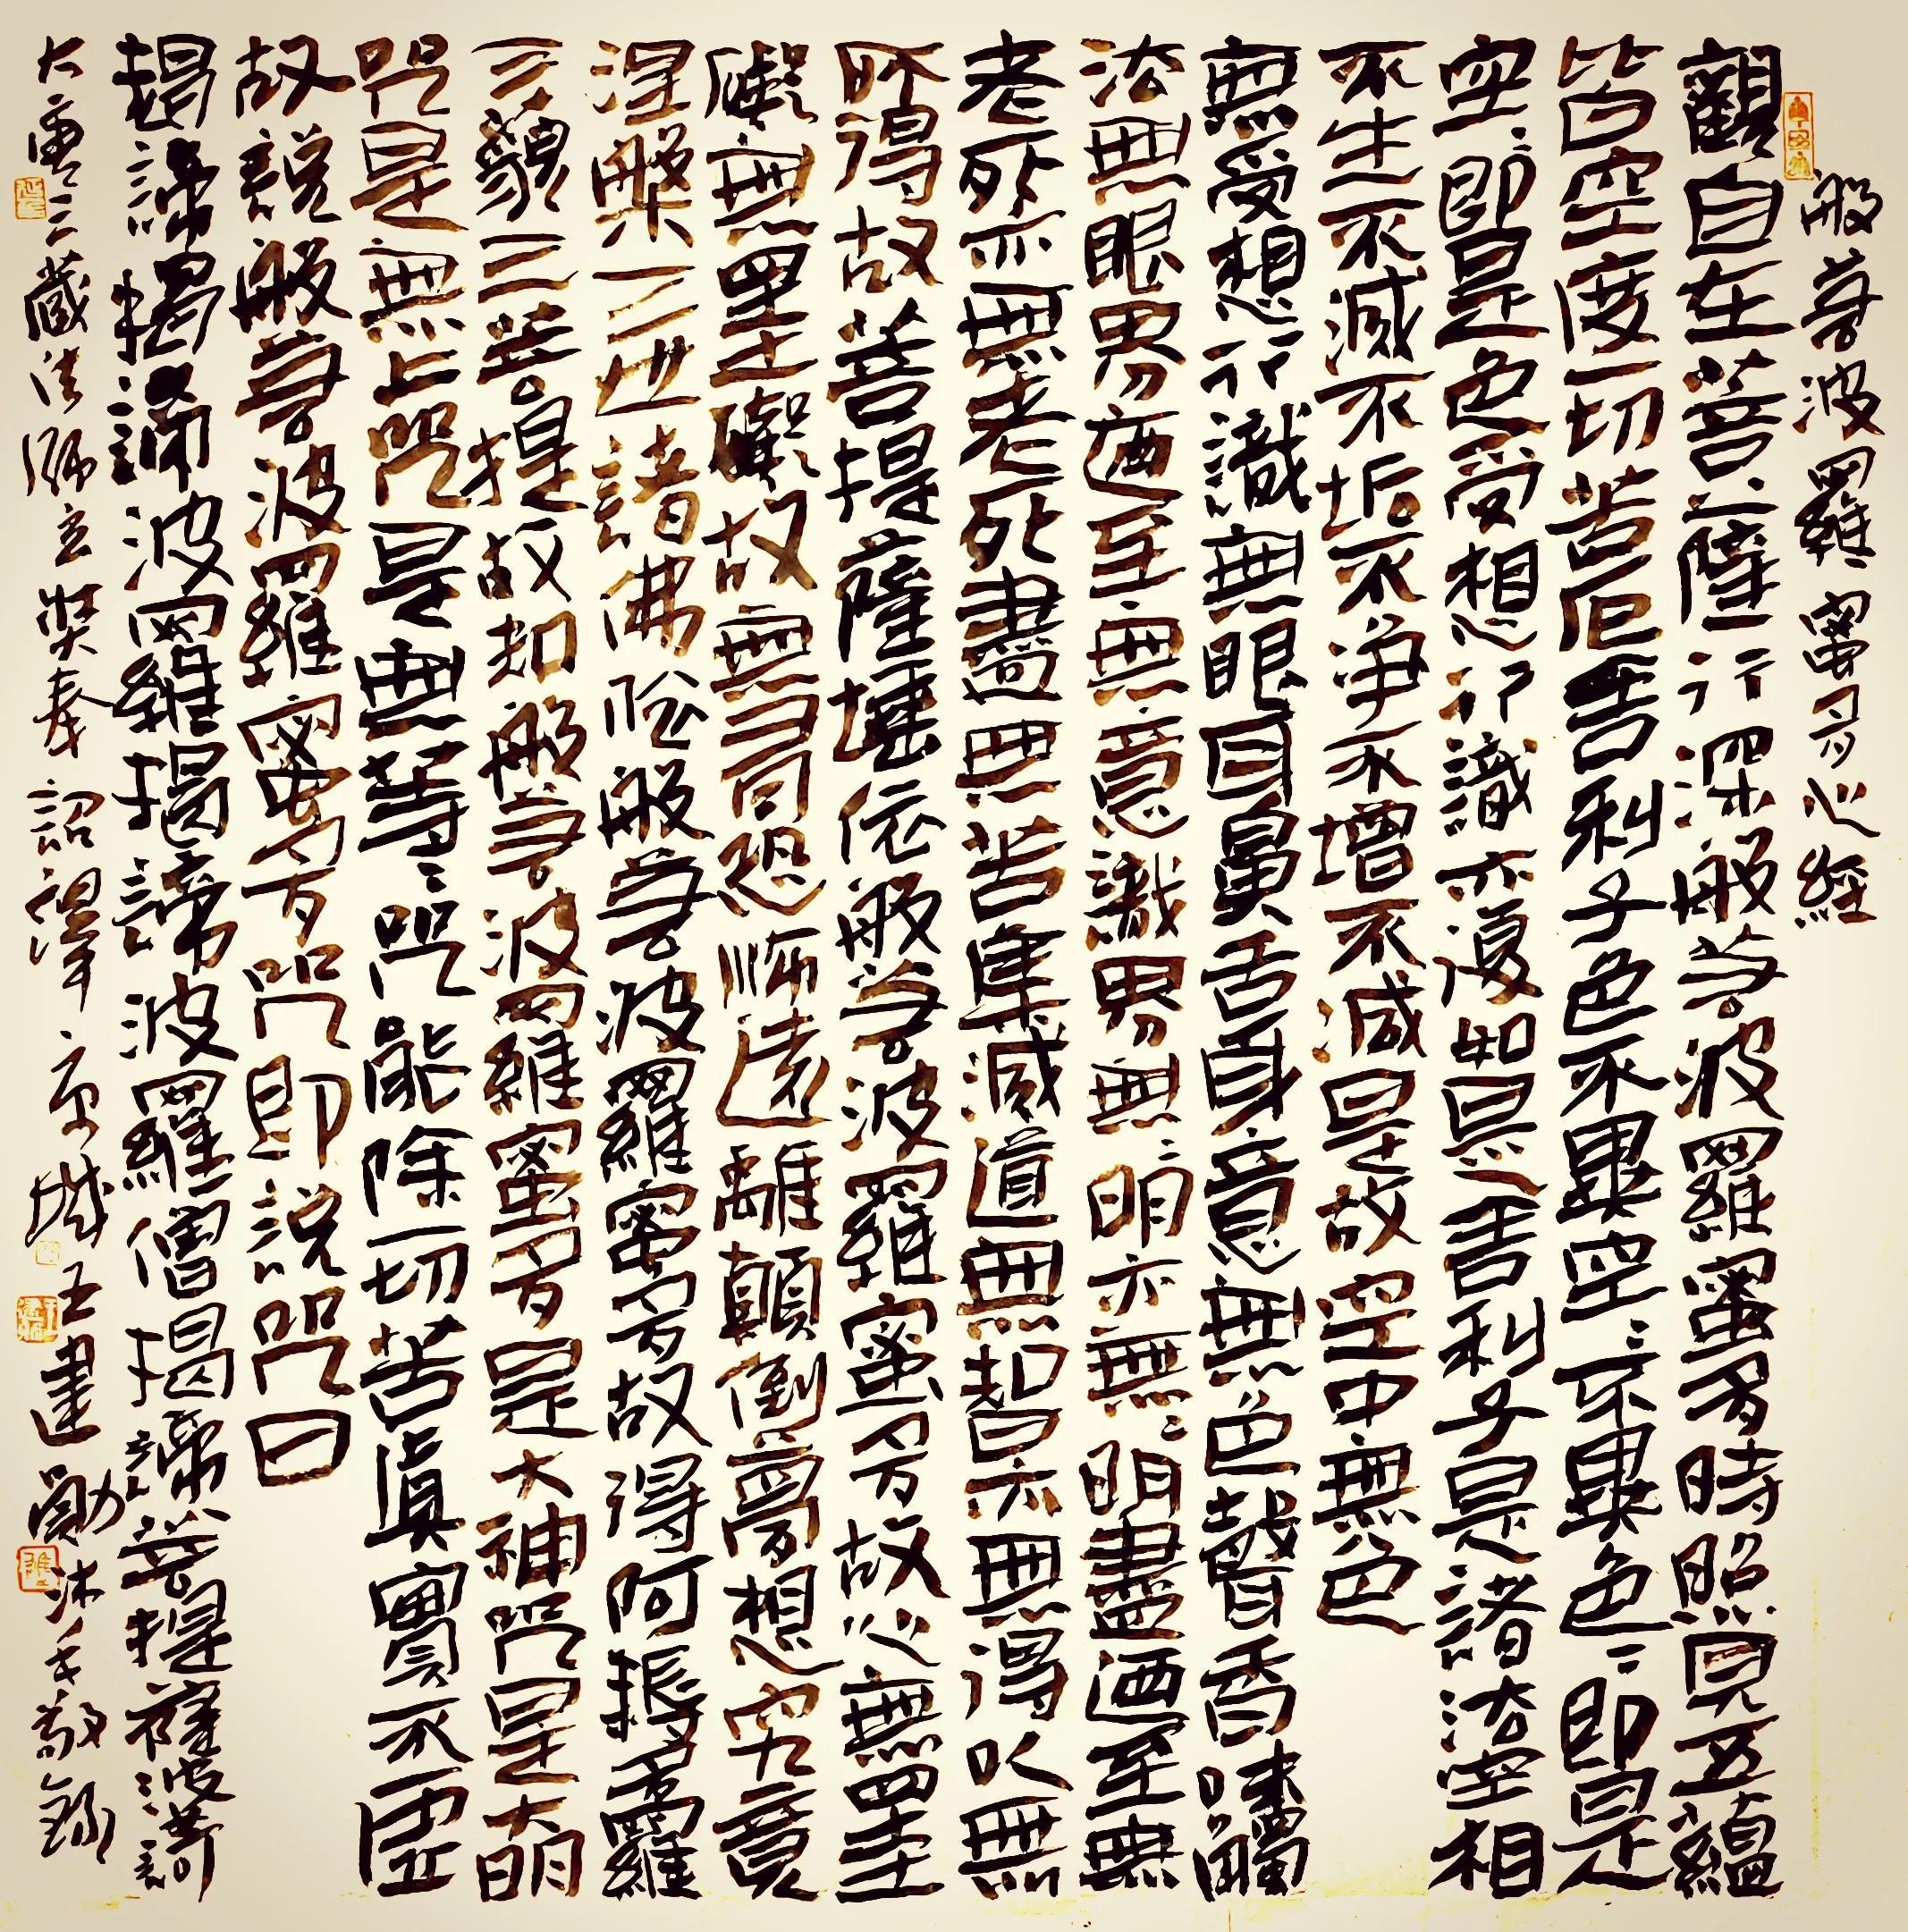 般若波羅蜜多心經
觀自在菩薩行深般若波羅蜜多時照見五蘊
皆空度一切苦厄舍利子色不異空〻不異色〻即是
空〻即是色受想行識亦復如是舍利子是諸法空相
不生不滅不垢不淨不增不減是故空中無色
無受想行識無眼耳鼻舌身意無色聲香味觸
法無眼界廼至無意識界無〻明亦無〻明盡廼至無
老死亦無老死盡無苦集滅道無智亦無得以無
所得故菩提薩埵依般若波羅蜜多故心無罣
礙無罣礙故無有恐怖遠離顛倒夢想究竟
涅槃三世諸佛依般若波羅蜜多故得阿耨多羅
三藐三菩提故知般若波羅蜜多是大神咒是大明
咒是無上咒是無等〻咒能除一切苦真實不虛
故說般若波羅蜜多咒即說咒曰
揭諦揭諦波羅揭諦波羅僧揭諦菩提薩婆訶
大唐三藏法師玄奘奉詔譯京城王建勛沐手敬錄